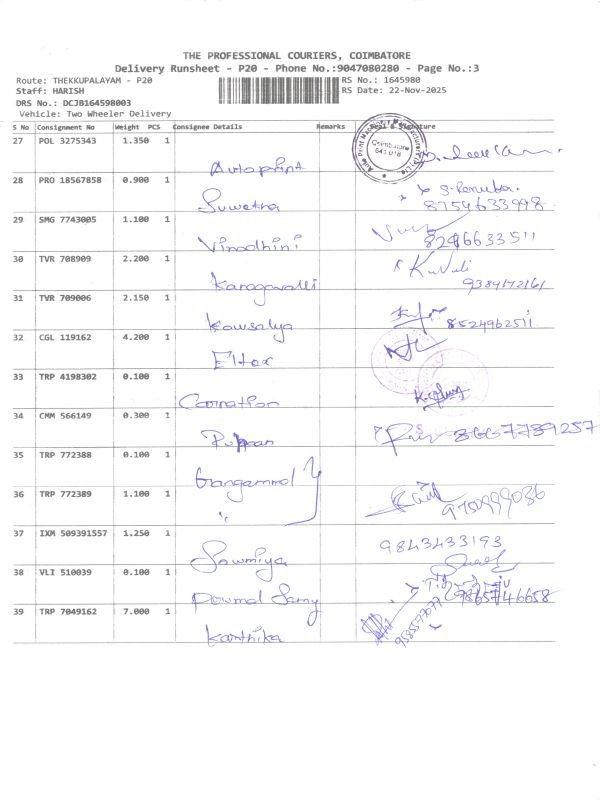 THE PROFESSIONAL COURIERS, COIMBATORE
Delivery Runsheet - P20 - Phone No.:9047080280 - Page No.:3
Route: THEKKUPALAYAM - P20 RS No.: 1645980
Staff: HARISH RS Date: 22-Nov-2025
DRS No.: DCJB164598003
Vehicle: Two Wheeler Delivery
S No Consignment No Weight PCS Consignee Details Remarks Seal & Signature
27 POL 3275343 1.350 1 Autoprint Coimbatore 641 018
28 PRO 18567858 0.900 1 Suwetha S. Renuka. 8754633998
29 SMG 7743005 1.100 1 Vinodhini 8246633511
30 TVR 708909 2.200 1 Karagavalli 9384172161
31 TVR 709006 2.150 1 Kowsalya 8524962511
32 CGL 119162 4.200 1 Eltex
33 TRP 4198302 0.100 1 Carnation
34 CMM 566149 0.300 1 8667739257
35 TRP 772388 0.100 1 Gangammal
36 TRP 772389 1.100 1 " 9750999086
37 IXM 509391557 1.250 1 Sowmiya 9843433193
38 VLI 510039 0.100 1 Ponmal Samy 9865746658
39 TRP 7049162 7.000 1 Karthika 9585577077